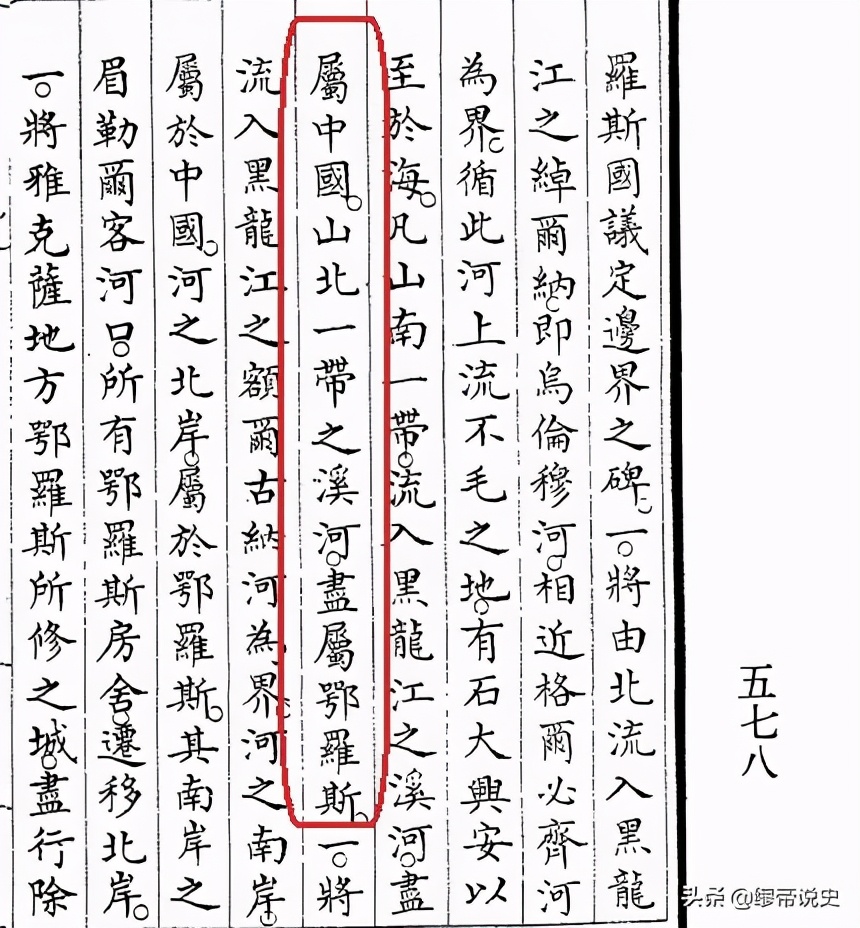 羅斯國議定邊界之碑。一。將由北流入黑龍
江之綽爾納。即烏倫穆河。相近格爾必齊河
為界。循此河上流不毛之地。有石大興安以
至於海。凡山南一帶。流入黑龍江之溪河。盡
屬中國。山北一帶之溪河。盡屬鄂羅斯。一。將
流入黑龍江之額爾古納河為界。河之南岸。
屬於中國。河之北岸。屬於鄂羅斯。其南岸之
眉勒爾客河口。所有鄂羅斯房舍。遷移北岸。
一。將雅克薩地方鄂羅斯所修之城。盡行除
五七八
头条 @缪帝说史